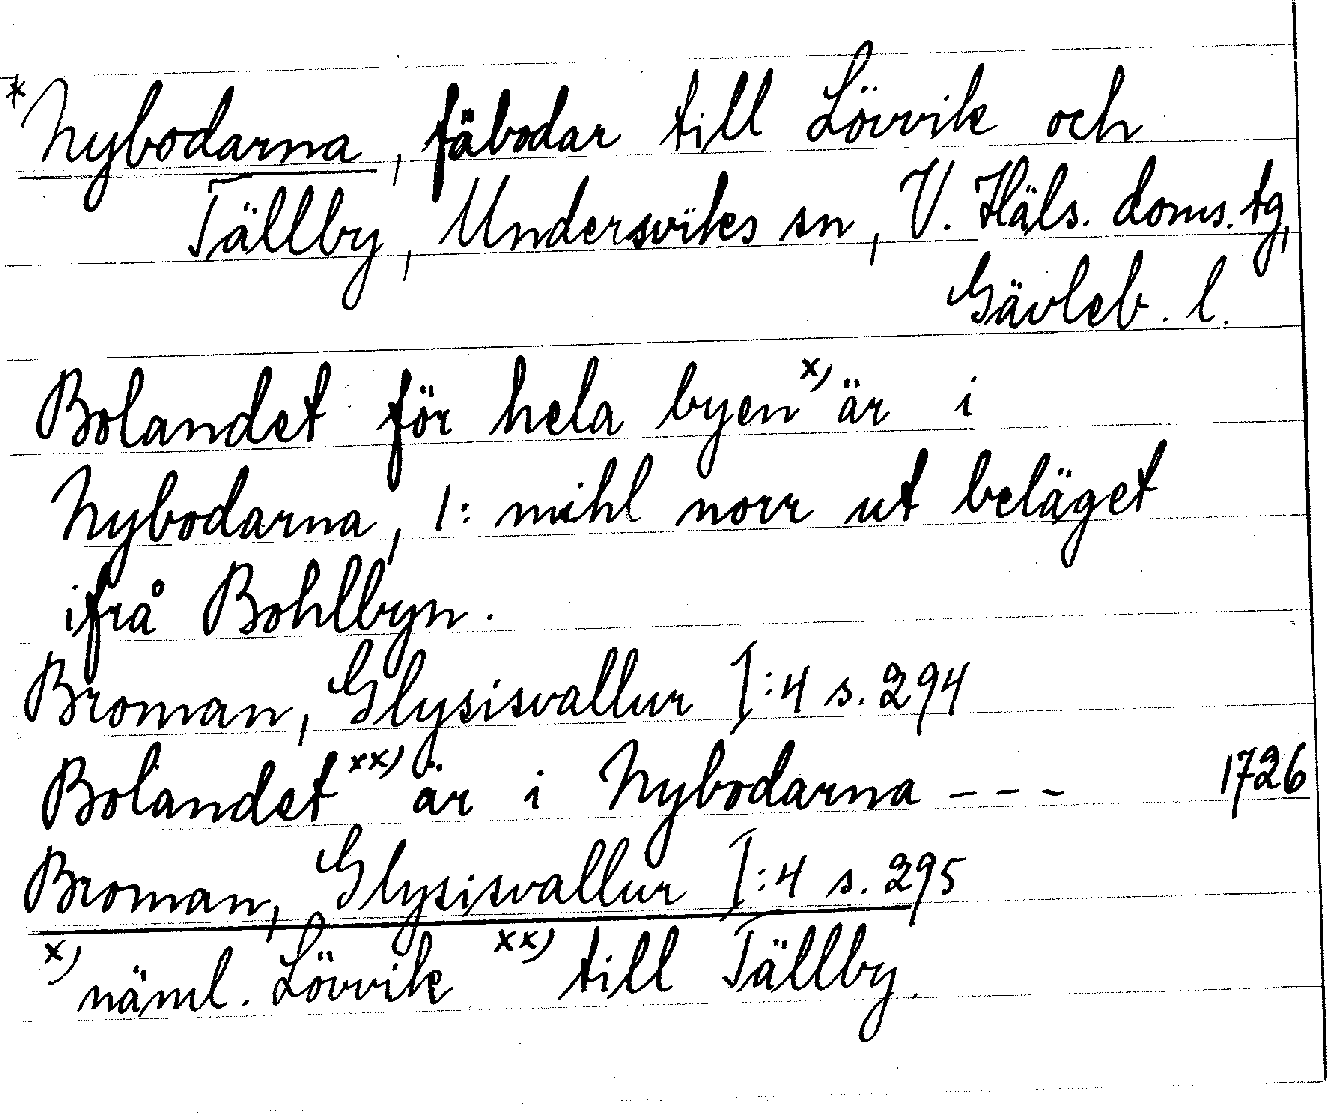 *Nybodarna, fäbodar till Lövvik och
Tällby, Undersviks sn, V. Häls. doms. tg,
Gävleb. l.
Bolandet för hela byen x) är i
Nybodarna, 1: mihl norr ut beläget
ifrå Bohlbyn.
Broman, Glysisvallur I:4 s. 294
Bolandet xx) är i Nybodarna - - - 1726
Broman, Glysisvallur I:4 s. 295
x) näml. Lövvik xx) till Tällby.